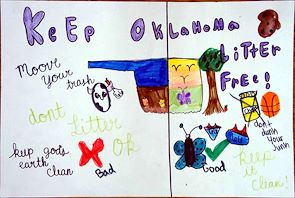 Keep Oklahoma
Litter
Free!
Moove
Your
trash
dont
Litter
OK
keep gods
earth
clean
Bad
Good
dont
dunk
your
Junk
keep
it
Clean!